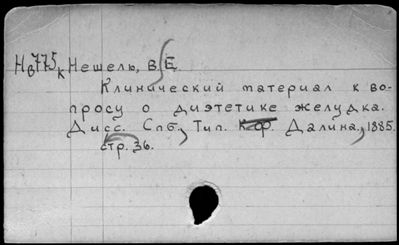 Нв775к Нешель, В.Е.
Клинический материал к во-
просу о диэтетике желудка.
Дисс. Спб., Тип. Далина, 1885.
стр. 36.